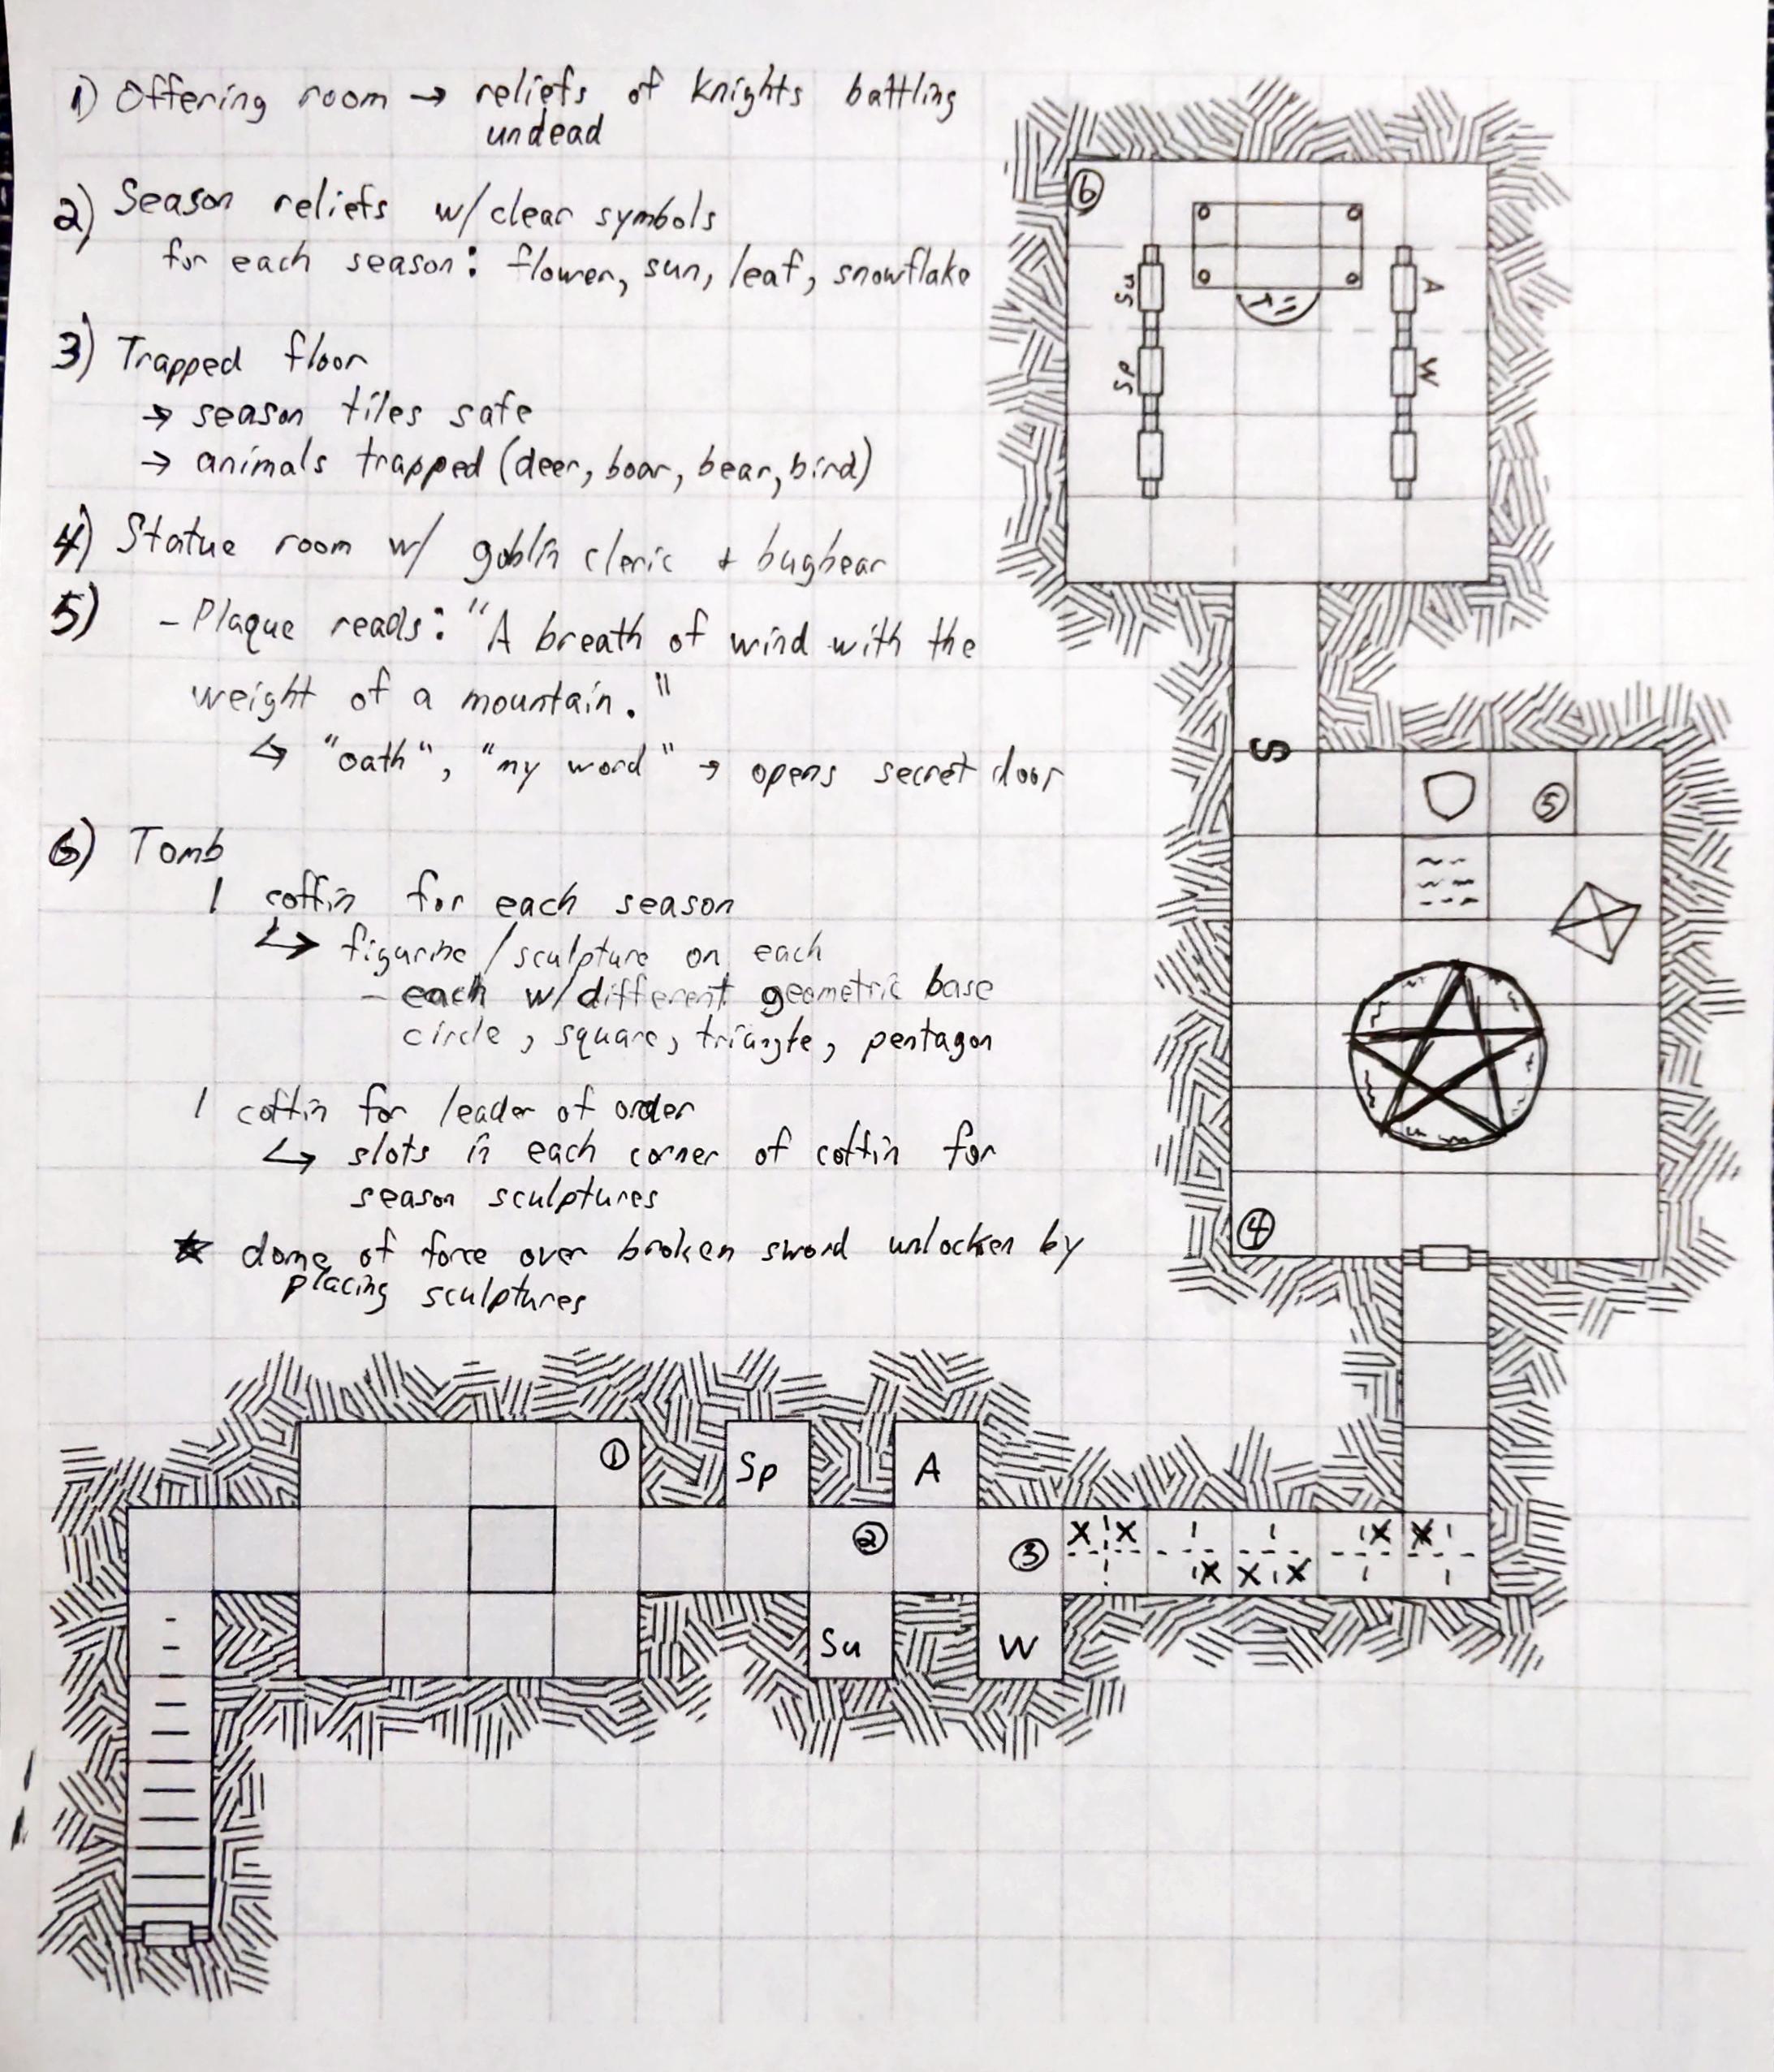 1) Offering room → reliefs of knights battling
undead
2) Season reliefs w/ clear symbols
for each season: flower, sun, leaf, snowflake
3) Trapped floor
→ season tiles safe
→ animals trapped (deer, boar, bear, bird)
4) Statue room w/ goblin cleric + bugbear
5) - Plaque reads: "A breath of wind with the
weight of a mountain."
↳ "oath", "my word" → opens secret door
6) Tomb
1 coffin for each season
↳ figurine / sculpture on each
- each w/ different geometric base
circle, square, triangle, pentagon
1 coffin for leader of order
↳ slots in each corner of coffin for
season sculptures
★ dome of force over broken sword unlocken by
placing sculptures
6
Su
A
Sp
W
S
5
4
1
Sp
A
2
3
X X
X
X X
X
X
Su
W